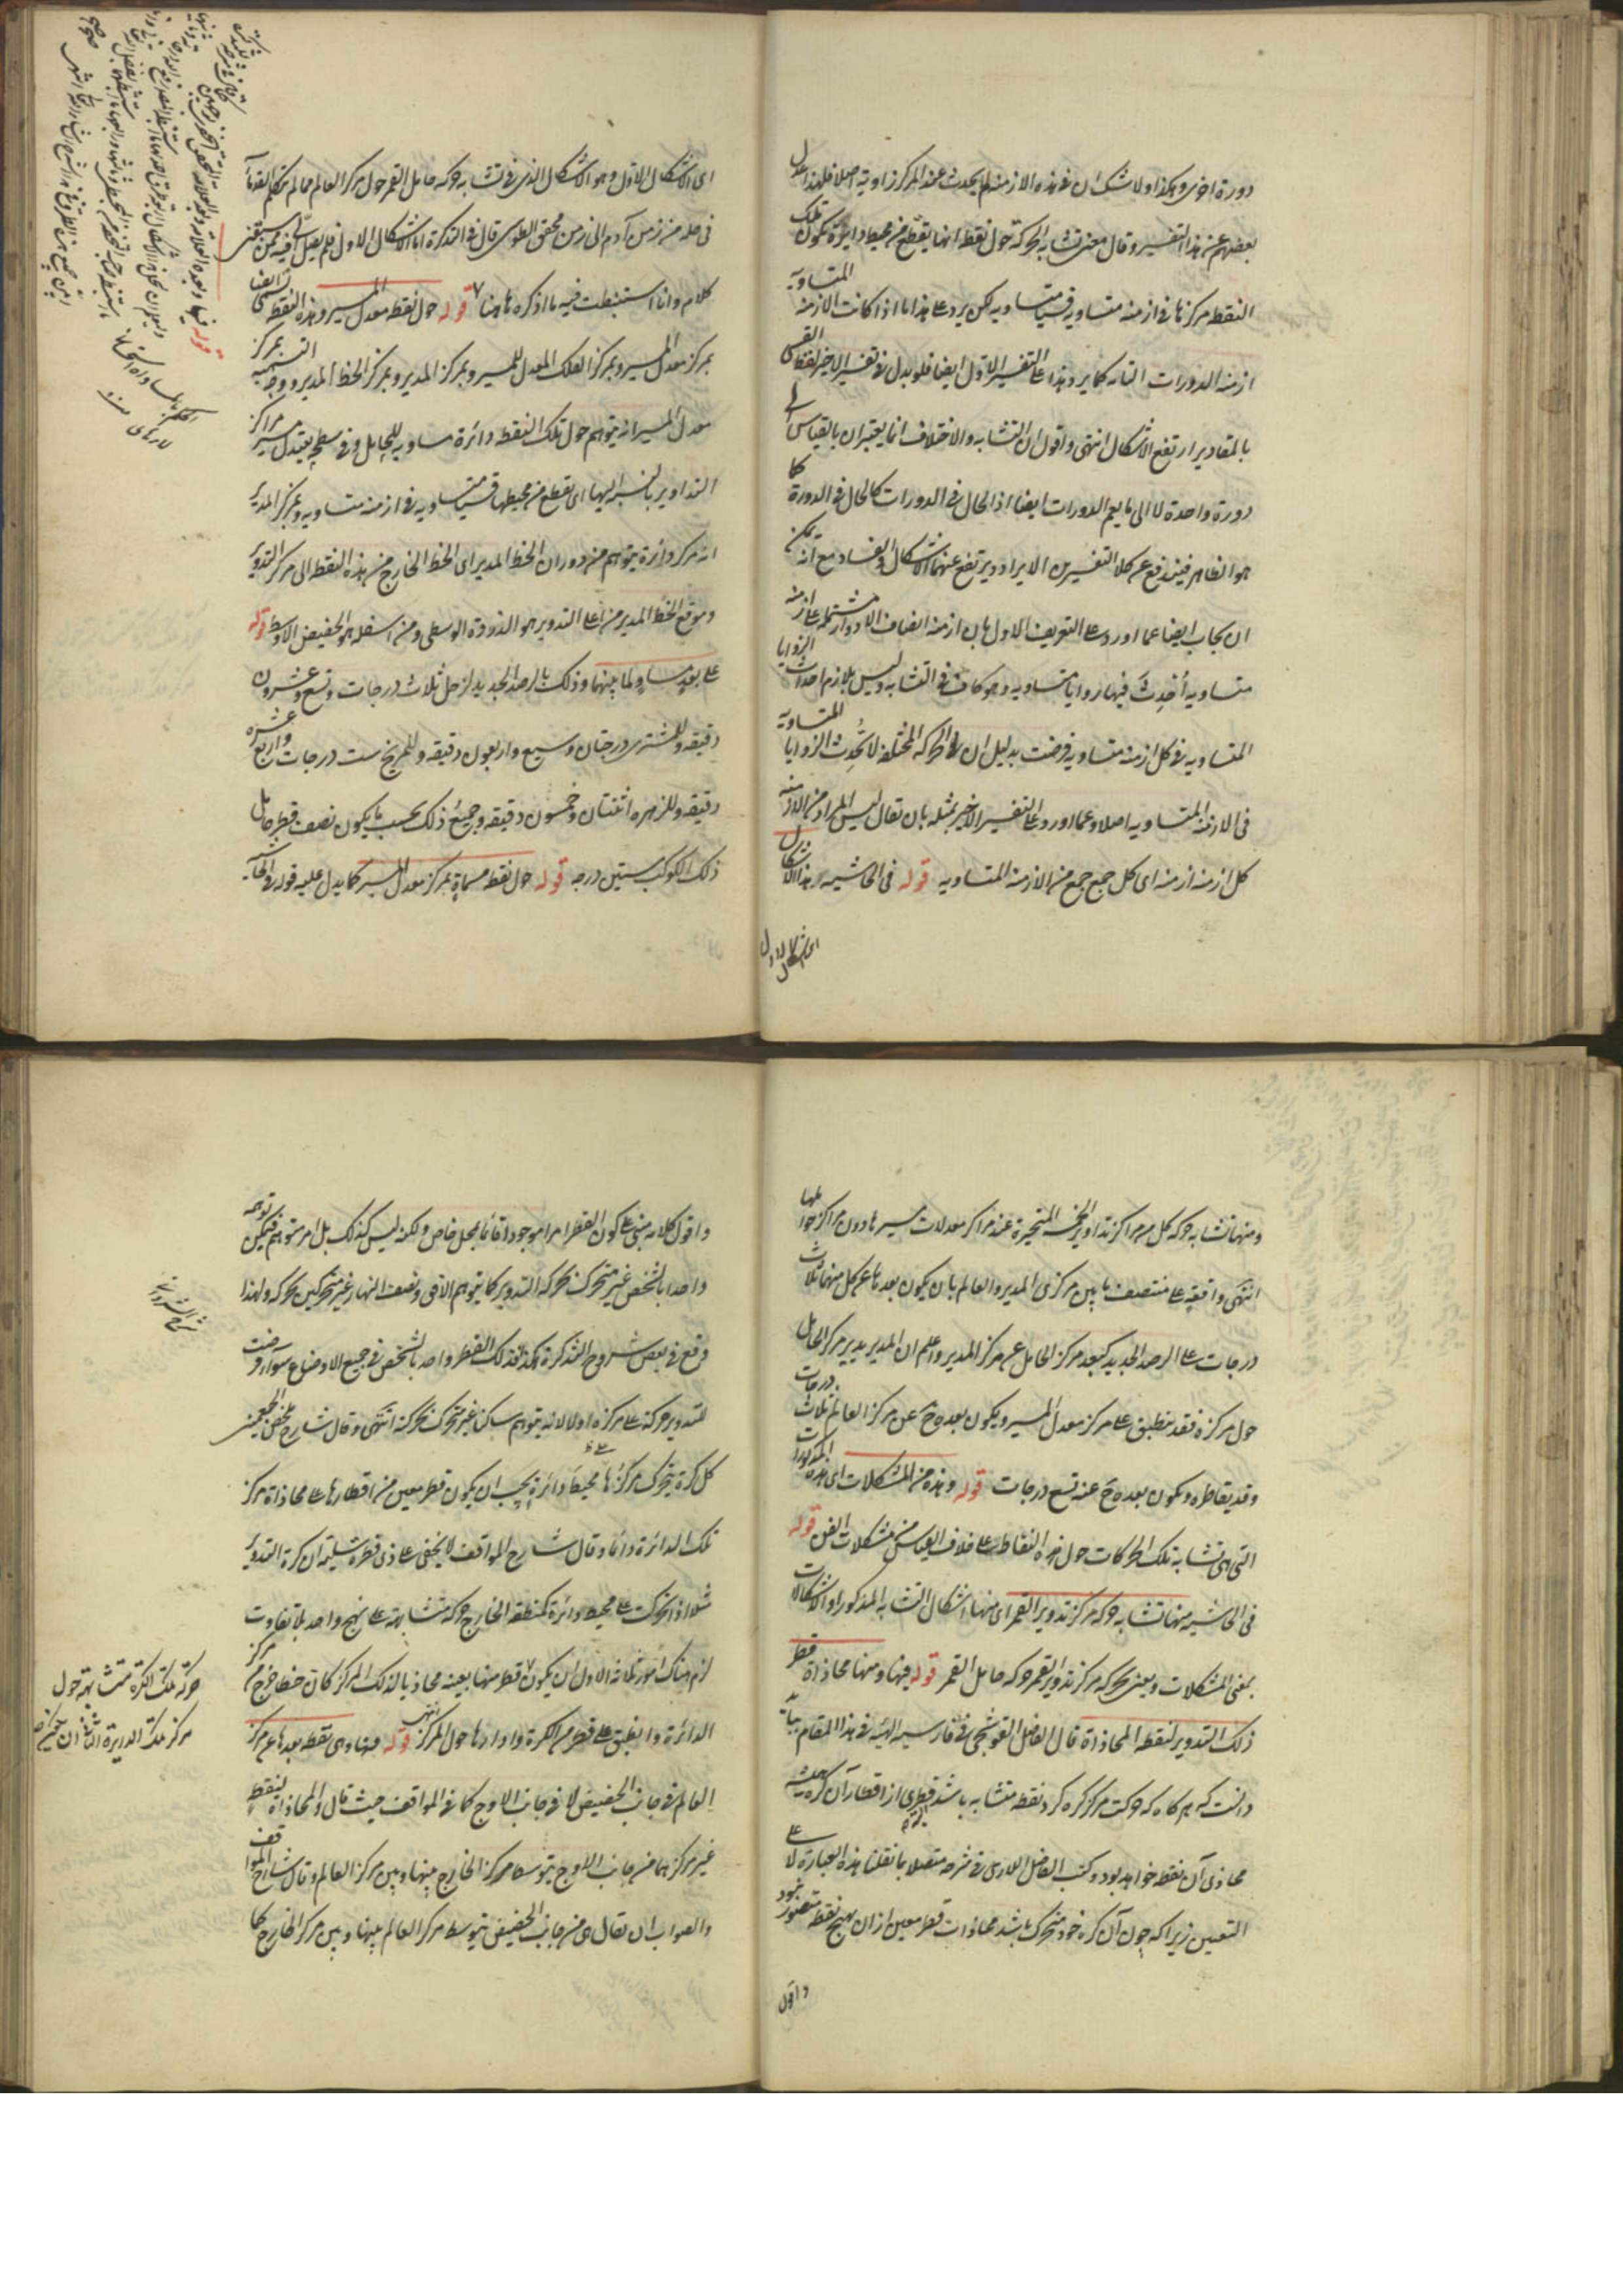 دورة اخرى وهكذا ولا شك ان فى هذه الازمنة لم يحدث عند المركز زاوية اصلا فلهذا عدل
بعضهم عن هذا التفسير وقال معنى تشابه الحركة حول نقطة انها يقطع من محيط دائرة يكون تلك
النقطة مركزها فى ازمنة متساوية قسيا متساوية لكن يرد على هذا ما اذا كانت الازمنة المتساوية
ازمنة الدورات التامة كما يرد هذا على التفسير الاول ايضا فلو بدل فى تفسير الاخير لفظ القسى
بالمقادير ارتفع الاشكال انتهى واقول ان التشابه والاختلاف انما يعتبران بالقياس الى
دورة واحدة لا الى ما يعم الدورات ايضا اذ الحال فى الدورات كالحال فى الدورة كما
هو الظاهر فيندفع عن كلا التفسيرين الايراد ويرتفع عنهما الاشكال والفساد مع انه يمكن
ان يجاب ايضا عما اورد على التعريف الاول بان ازمنة انصاف الادوار مشتملة على ازمنة
متساوية أُحدِثَ فيها زوايا متساوية وهو كاف فى التشابه وليس بلازم احداث الزوايا
المتساوية فى كل ازمنة متساوية فرضت بدليل ان فى الحركة المختلفة لا تُحدِث الزوايا المتساوية
فى الازمنة المتساوية اصلا وعما اورد على التفسير الاخير بمثله بان يقال ليس المراد من الازمنة
كل ازمنة ازمنة اى كل جمع جمع من الازمنة المتساوية قوله فى الحاشية هذا الاشكال الاول
اى الاشكال الاول
اى الاشكال الاول وهو الاشكال الذى فى تشابه حركة حامل القمر حول مركز العالم مما لم يتكلم القدماء
فى حله من زمن آدم الى زمن محقق الطوسى قال فى التذكرة اما الاشكال الاول فلم يصل الىّ فيه ممن سبقنى
كلام وانا استنبطت فيه ما اذكره هاهنا قوله حول نقطة معدل المسير وهذه النقطة تسمى ايضا
بمركز معدل المسير وبمركز الفلك المعدل للمسير وبمركز المدير وبمركز الخط المدير ووجه التسمية بمركز
معدل المسير انه يتوهم حول تلك النقطة دائرة مساوية للحامل وفى سطحه يعتدل مسير مراكز
التداوير بالنسبة اليها اى يقطع من محيطها قسيا متساوية فى ازمنة متساوية وبمركز المدير
انه مركز دائرة يتوهم من دوران الخط المدير اى الخط الخارج من هذه النقطة الى مركز التدوير
وموقع الخط المدير من اعلى التدوير هو الذروة الوسطى ومن اسفله هو الحضيض الاوسط قوله
على بعد مساو لما بينهما وذلك بالرصد الجديد لزحل ثلاث درجات وتسع وعشرون
دقيقة وللمشترى درجتان وسبع واربعون دقيقة وللمريخ ست درجات واربع عشرة
دقيقة وللزهرة اثنتان وخمسون دقيقة وجميع ذلك بحسب ما يكون نصف قطر حامل
ذلك الكوكب ستين درجة قوله حول نقطة مسماة بمركز معدل المسير كما يدل عليه قوله فى الحاشية
ومنها تشابه حركة كل من مراكز تداوير الخمسة المتحيرة عند مراكز معدلات مسيرها دون مراكز حواملها
انتهى واقعة على منتصف ما بين مركزى المدير والعالم بان يكون بعدها عن كل منهما ثلاث
درجات على الرصد الجديد كبعد مركز الحامل عن مركز المدير واعلم ان المدير يدير مركز الحامل
حول مركزه فقد ينطبق على مركز معدل المسير ويكون بعده ح عن مركز العالم ثلاث درجات
وقد يقاطره ويكون بعده ح عنه تسع درجات قوله وهذه من المشكلات اى هذه المذكورات
التى هى تشابه تلك الحركات حول هذه النقاط على خلاف القياس من مشكلات الفن قوله
فى الحاشية منها تشابه حركة مركز تدوير القمر اى منها اشكال التشابه المذكور او الاشكالات
بمعنى المشكلات ويعنى بحركة مركز تدوير القمر حركة حامل القمر قوله فيها ومنها محاذاة قطر
ذلك التدوير لنقطة المحاذاة قال الفاضل القوشجى فى فارسية الهيئة فى هذا المقام بباید
دانست كه هر كاه كه حركت مركز كره كرد نقطه متشابه باشد قطرى از اقطار آن كره هميشه
محاذى آن نقطه خواهد بود وكتب الفاضل اللارى فى شرحه متصلا بما نقلنا هذه العبارة لا على
التعيين زيرا كه چون آن كره خود متحرك باشد محاذات قطر معين از ان بهيچ نقطه متصور نبود
واقول
واقول كلامه مبنى على كون القطر امرا موجودا قائما بمحل خاص ولكنه ليس كذلك بل امر متوهم فيمكن توهمه
واحدا بالشخص غير متحرك بحركة التدوير كما يتوهم الافق ونصف النهار غير متحركين بحركة ولهذا
وقع فى بعض شروح التذكرة هكذا فذلك القطر واحد بالشخص فى جميع الاوضاع سواء فرضت
للتدوير حركة على مركزه او لا لانه يتوهم ساكنا غير متحرك بحركته انتهى وقال شارح ملخص الجغمينى
كل كرة يتحرك مركزها على محيط دائرة يجب ان يكون قطر معين من اقطارها على محاذاة مركز
تلك الدائرة دائما وقال شارح المواقف لا يخفى على ذى فطرة سليمة ان كرة التدوير
مثلا اذا تحركت على محيط دائرة كمنطقة الخارج حركة متشابهة على نهج واحد بلا تفاوت
لزم هناك امور ثلاثة الاول ان يكون قطر منها بعينه محاذيا لذلك المركز كان خطا خرج من مركز
الدائرة وانطبق على قطر من الكرة وادارها حول المركز انتهى قوله فيها وهى نقطة بعدها عن مركز
العالم فى جانب الحضيض لا فى جانب الاوج كما فى المواقف حيث قال والمحاذاة لنقطة
غير مركزهما من جانب الاوج يتوسط مركز الخارج بينها وبين مركز العالم وقال شارح المواقف
والصواب ان يقال هى من جانب الحضيض يتوسط مركز العالم بينها وبين مركز الخارج كما
حركة تلك الكرة متشابهة حول
مركز تلك الدائرة الثانى ان